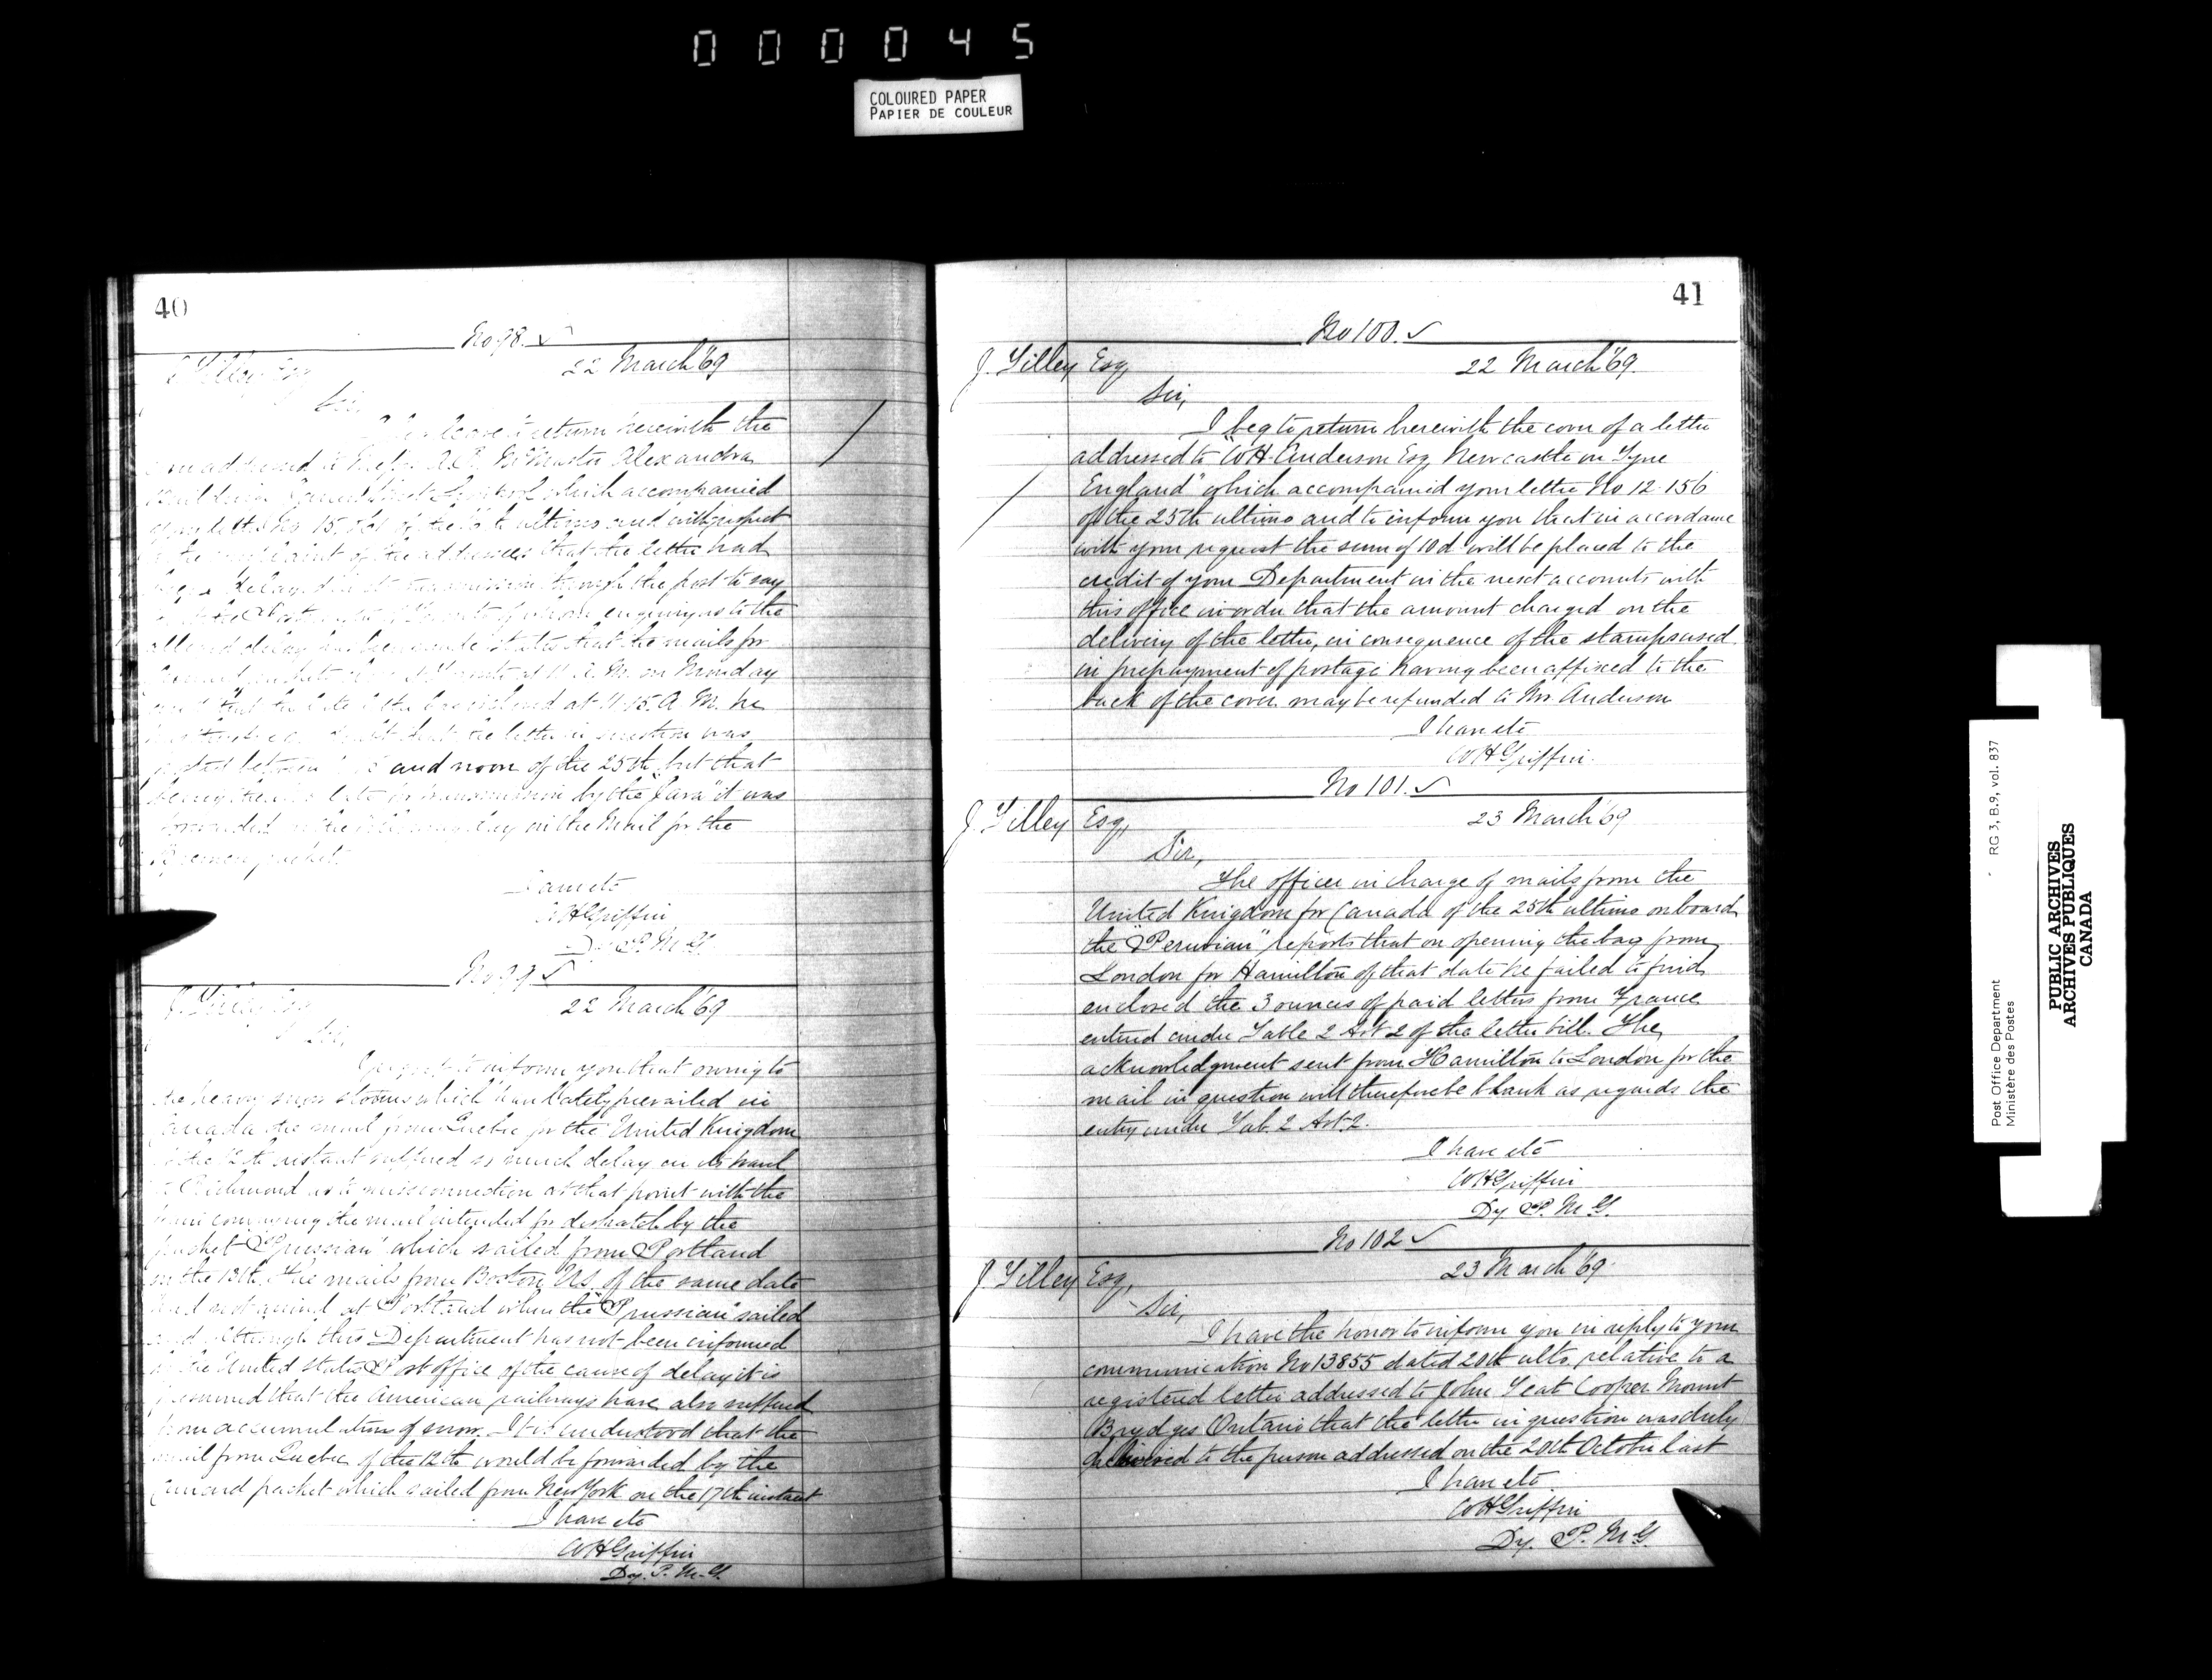 000045
COLOURED PAPER
PAPIER DE COULEUR
40
No 98. ✓
22 March '69
J Tilley Esq
Sir,
leave to return herewith the
addressed to Messrs A.P. McMaster Alexandra
Buildings James Street Liverpool which accompanied
your letter No 15, of the ultimo and with respect
to the complaint of the addressees that the letter had
been delayed in its transmission through the post to say
that the Postmaster of Toronto of whom enquiry as to the
alleged delay has been made states that the mails for
Cunard packets close at Toronto at 11 A.M. on Monday
and that the late letter bag is closed at 11.15. A.M. he
that the letter in question was
posted between and noon of the 25th, but that
being then too late for transmission by the "Java" it was
forwarded on the following day in the Mail for the
Bremen packet.
I am etc
WH Griffin
Dy P.M.G.
No 99 ✓
22 March '69
J. Tilley Esq
Sir,
I beg to inform you that owing to
the heavy snow storms which have lately prevailed in
Canada the mail from Quebec for the United Kingdom
of the 12th instant suffered so much delay on its
to Richmond as to miss connection at that point with the
train conveying the mail intended for despatch by the
packet "Prussian" which sailed from Portland
on the 13th. The mails from Boston U.S. of the same date
had not arrived at Portland when the "Prussian" sailed
and although this Department has not been informed
by the United States Post office of the cause of delay it is
presumed that the American railways have also suffered
from accumulation of snow. It is understood that the
mail from Quebec of the 12th would be forwarded by the
Cunard packet which sailed from New York on the 17th instant
I have etc
WH Griffin
Dy. P.M.G.
41
No 100. ✓
J. Tilley Esq,
22 March '69.
Sir,
I beg to return herewith the cover of a letter
addressed to "WH. Anderson Esq, Newcastle on Tyne
England" which accompanied your letter No 12.156
of the 25th ultimo and to inform you that in accordance
with your request the sum of 10d will be placed to the
credit of your Department in the next accounts with
this office in order that the amount charged on the
delivery of the letter, in consequence of the stamps used
in prepayment of postage having been affixed to the
back of the cover may be refunded to Mr Anderson
I have etc
WH Griffin.
No 101. ✓
J Tilley Esq,
23 March '69
Sir,
The officer in charge of mails from the
United Kingdom for Canada of the 25th ultimo on board
the "Peruvian" reports that on opening the bag from
London for Hamilton of that date he failed to find
enclosed the 3 ounces of paid letters from France
entered under Table 2 Art 2 of the letter bill. The
acknowledgment sent from Hamilton to London for the
mail in question will therefore be blank as regards the
entry under Tab. 2 Art 2.
I have etc
WH Griffin
Dy. P.M.G.
No 102 ✓
J Tilley Esq,
23 March '69.
Sir,
I have the honor to inform you in reply to your
communication No 13855 dated 20th ulto, relative to a
registered letter addressed to John Yeat Cooper Mount
Brydges Ontario that the letter in question was duly
delivered to the person addressed on the 20th October last
I have etc
WH Griffin
Dy. P.M.G.
Post Office Department
Ministère des Postes
RG 3, B.9, vol. 837
PUBLIC ARCHIVES
ARCHIVES PUBLIQUES
CANADA